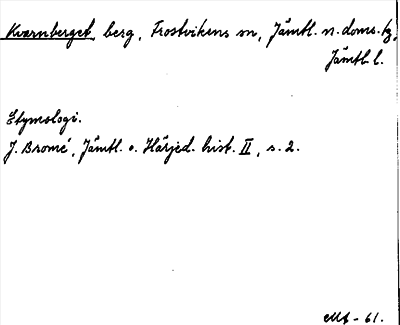 Kvarnberget, berg, Frostvikens sn, Jämtl. n. doms. tg,
Jämtl. l.
Etymologi.
J. Bromé, Jämtl. o. Härjed. hist. II, s. 2.
MB - 61.